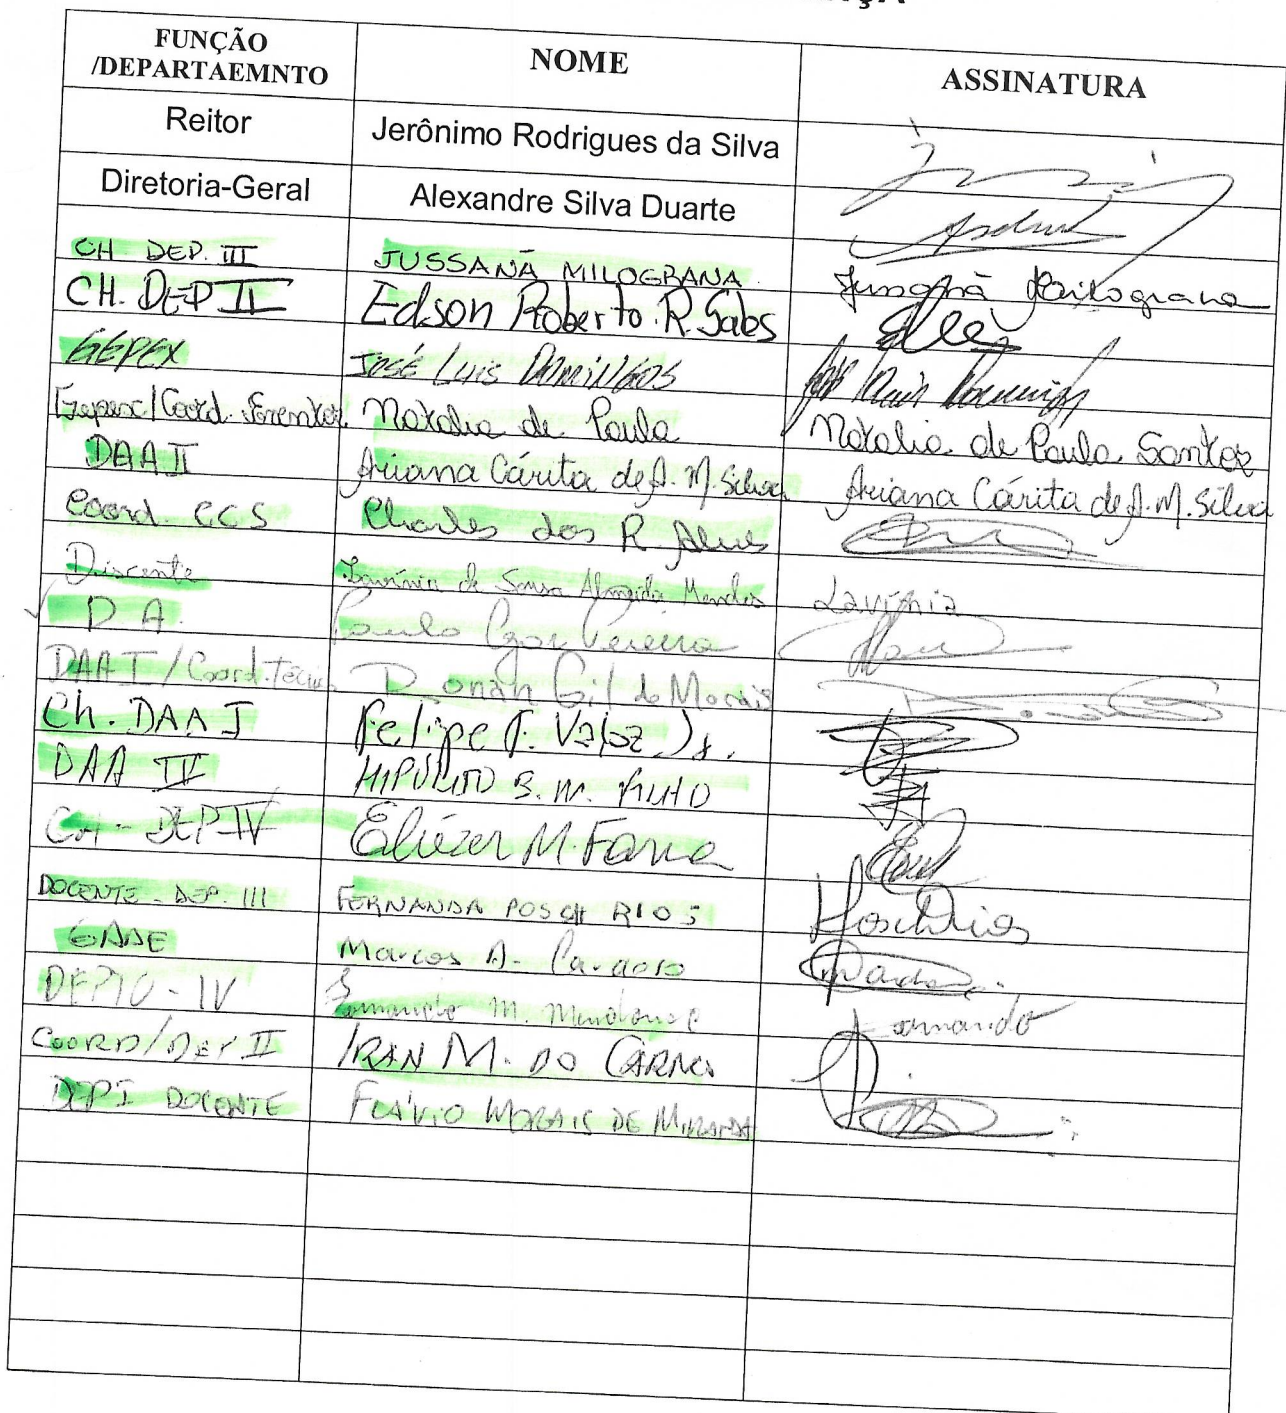 FUNÇÃO
/DEPARTAEMNTO
NOME
ASSINATURA
Reitor Jerônimo Rodrigues da Silva
Diretoria-Geral Alexandre Silva Duarte
CH DEP. III JUSSANÃ MILOGRANA Jussanã Milograna
CH. DEP II Edson Roberto R. Sales
GEPEX JOSÉ LUIS DOMINGOS José Luis Domingos
Gepex/Coord. Natalia de Paula Natalia de Paula Santos
DAA II Ariana Cárita de A. M. Silva Ariana Cárita de A. M. Silva
Coord. CCS Charles dos R. Alves
Discente Lavínia de Sousa Almeida Mendes Lavínia
D A. Paulo Igor Pereira
DAA I / Coord. Técnic Ronan Gil de Morais
Ch. DAA I Felipe F. Valoz Jr.
DAA IV HIPÓLITO B. M.
CH - DEP IV Eliézer M. Faria
DOCENTE - DEP. III FERNANDA POSCH RIOS
GADE Marcos A. Cardoso
DEPTO - IV M.
COORD/DEP II IRAN M. DO CARMO
DEPI DOCENTE FLÁVIO MORAIS DE MIRANDA